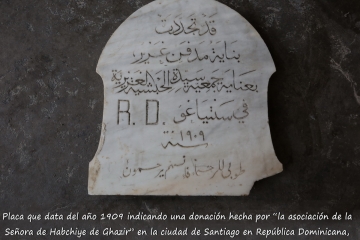 قد تجددت
بناية مدفن غزير
بعناية جمعية سيدة الحبشية الغزيرية
في سنتياغو R. D.
سنة ١٩٠٩
طوبى للرحماء فانهم يرحمون
Placa que data del año 1909 indicando una donación hecha por "la asociación de la
Señora de Habchiye de Ghazir" en la ciudad de Santiago en República Dominicana,